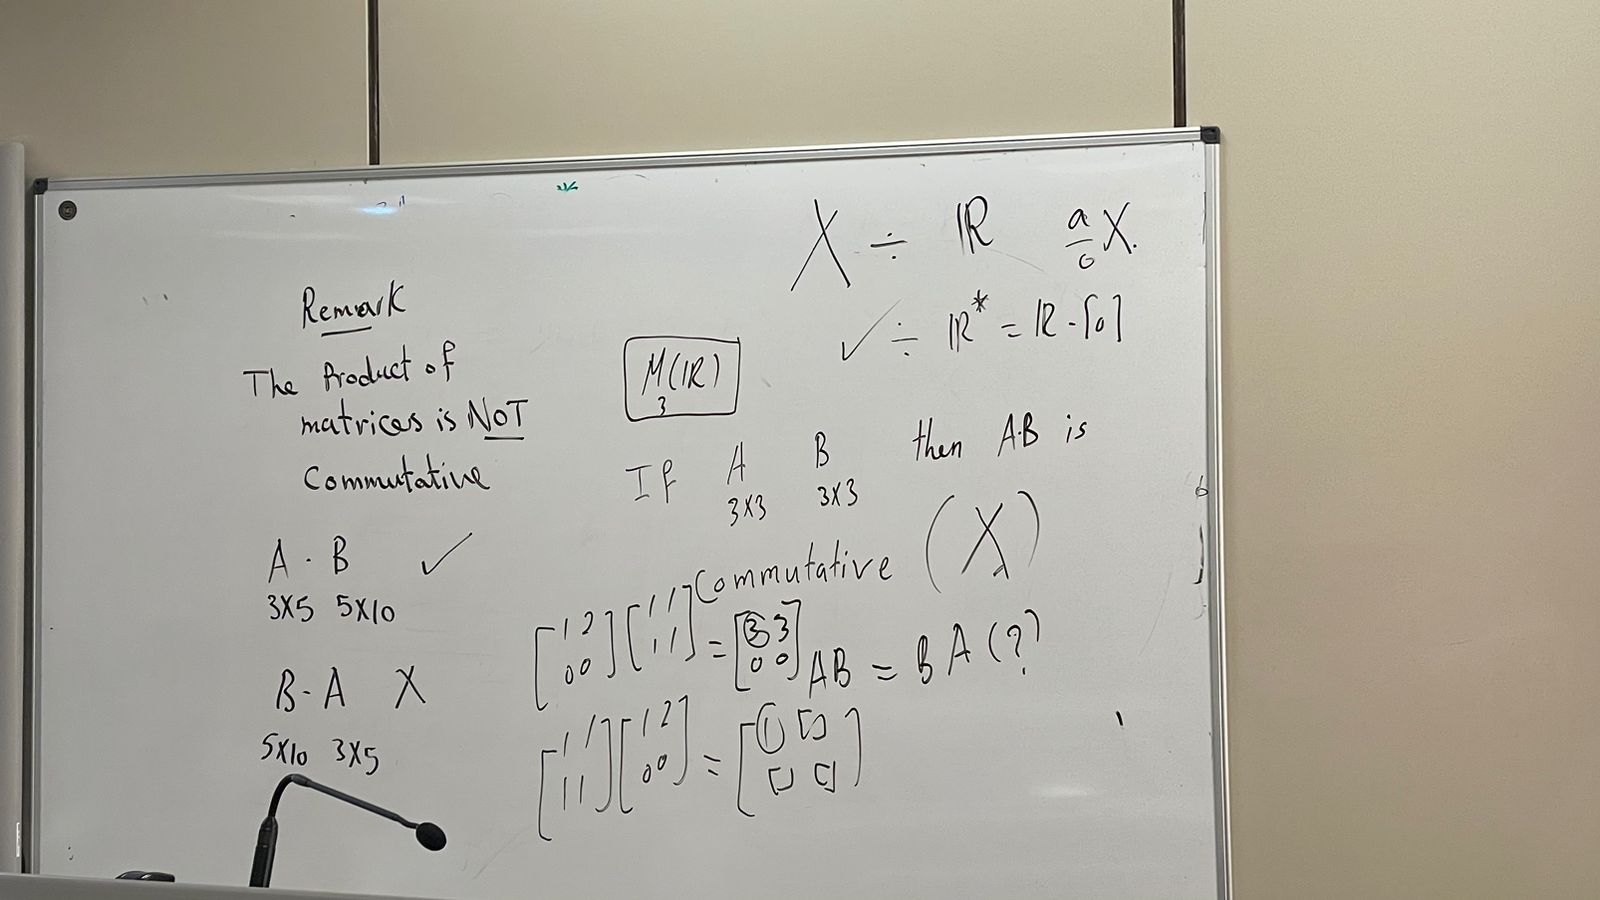 Remark
The Product of
matrices is NOT
Commutative
A · B ✓
3X5 5X10
B · A X
5X10 3X5
X ÷ ℝ a/0 X.
✓ ÷ ℝ* = ℝ - {0}
M₃(ℝ)
If A B then A·B is
3X3 3X3
Commutative (X)
[1 2; 0 0] [1 1; 1 1] = [3 3; 0 0]
AB = BA (?)
[1 1; 1 1] [1 2; 0 0] = [1 []; [] []]